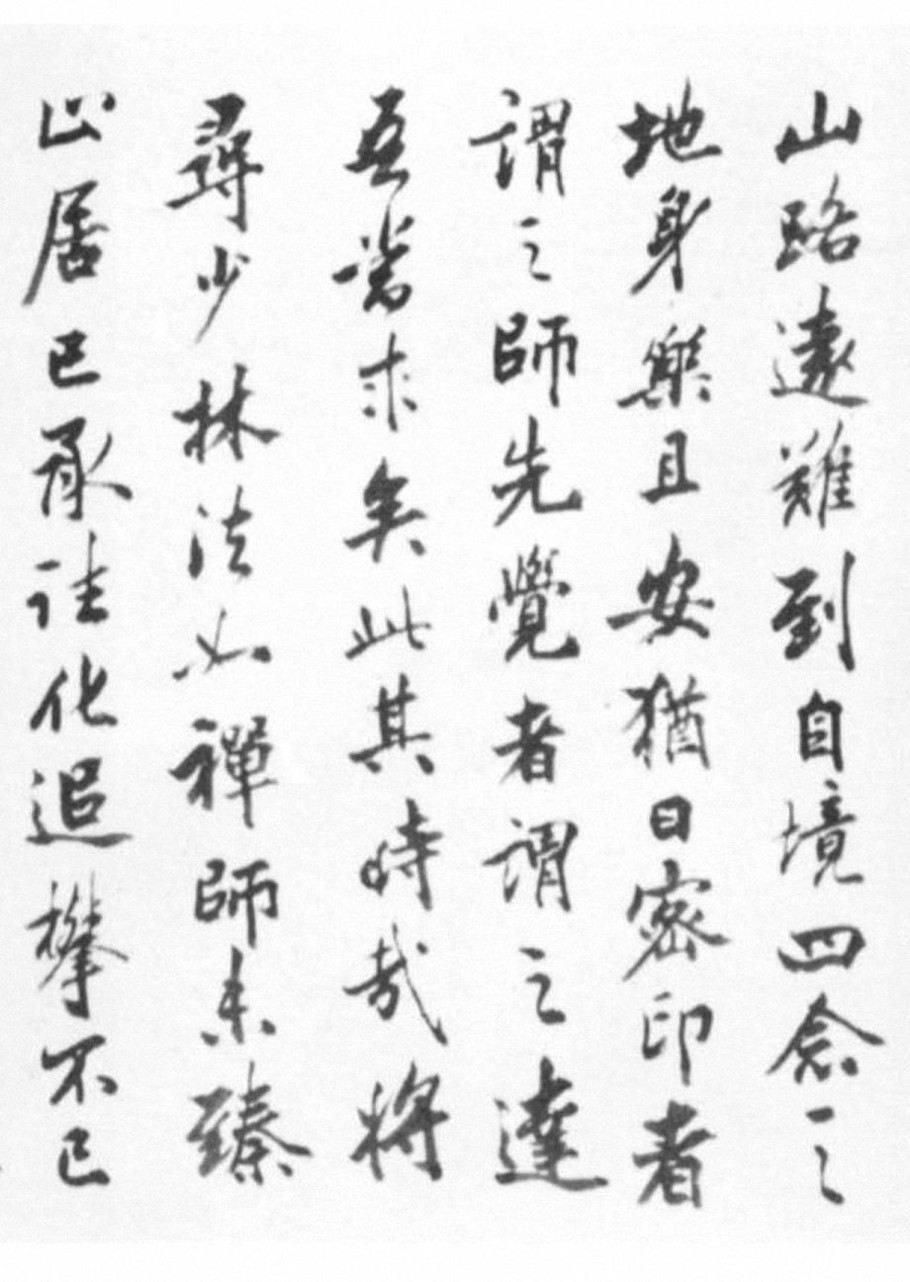 山路遠難到自境四念之
地身樂且安猶曰密印者
謂之師先覺者謂之達
吾當求矣此其時哉將
尋少林法如禪師未臻
止居已承化追攀不已